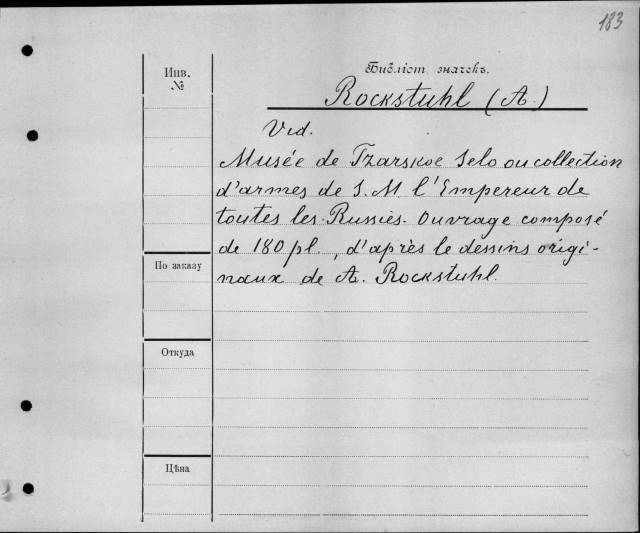 183
Инв.
№
Библіот. значекъ.
Rockstuhl (A.)
Vid.
Musée de Tzarskoe Selo ou collection
d'armes de S. M. l'Empereur de
toutes les Russies. Ouvrage composé
de 180 pl., d'après le dessins origi-
naux de A. Rockstuhl.
По заказу
Откуда
Цѣна